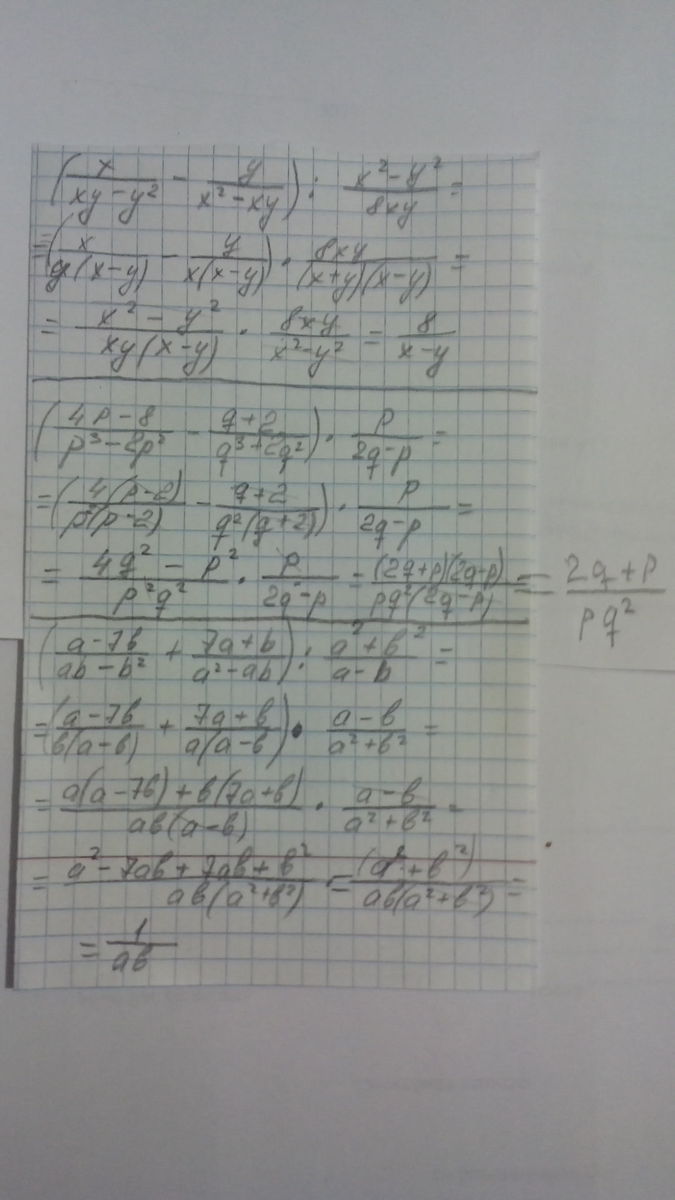 (x/(xy-y²) - y/(x²-xy)) : (x²-y²)/(8xy) =
=(x/(y(x-y)) - y/(x(x-y))) · 8xy/((x+y)(x-y)) =
= (x²-y²)/(xy(x-y)) · 8xy/(x²-y²) = 8/(x-y)
((4p-8)/(p³-2p²) - (q+2)/(q³+2q²)) · p/(2q-p) =
=(4(p-2)/(p²(p-2)) - (q+2)/(q²(q+2))) · p/(2q-p) =
= (4q²-p²)/(p²q²) · p/(2q-p) = (2q+p)(2q-p)/(pq²(2q-p)) = (2q+p)/(pq²)
((a-7b)/(ab-b²) + (7a+b)/(a²-ab)) : (a²+b²)/(a-b) =
=((a-7b)/(b(a-b)) + (7a+b)/(a(a-b))) · (a-b)/(a²+b²) =
= (a(a-7b)+b(7a+b))/(ab(a-b)) · (a-b)/(a²+b²) =
= (a²-7ab+7ab+b²)/(ab(a²+b²)) = (a²+b²)/(ab(a²+b²)) =
= 1/(ab)